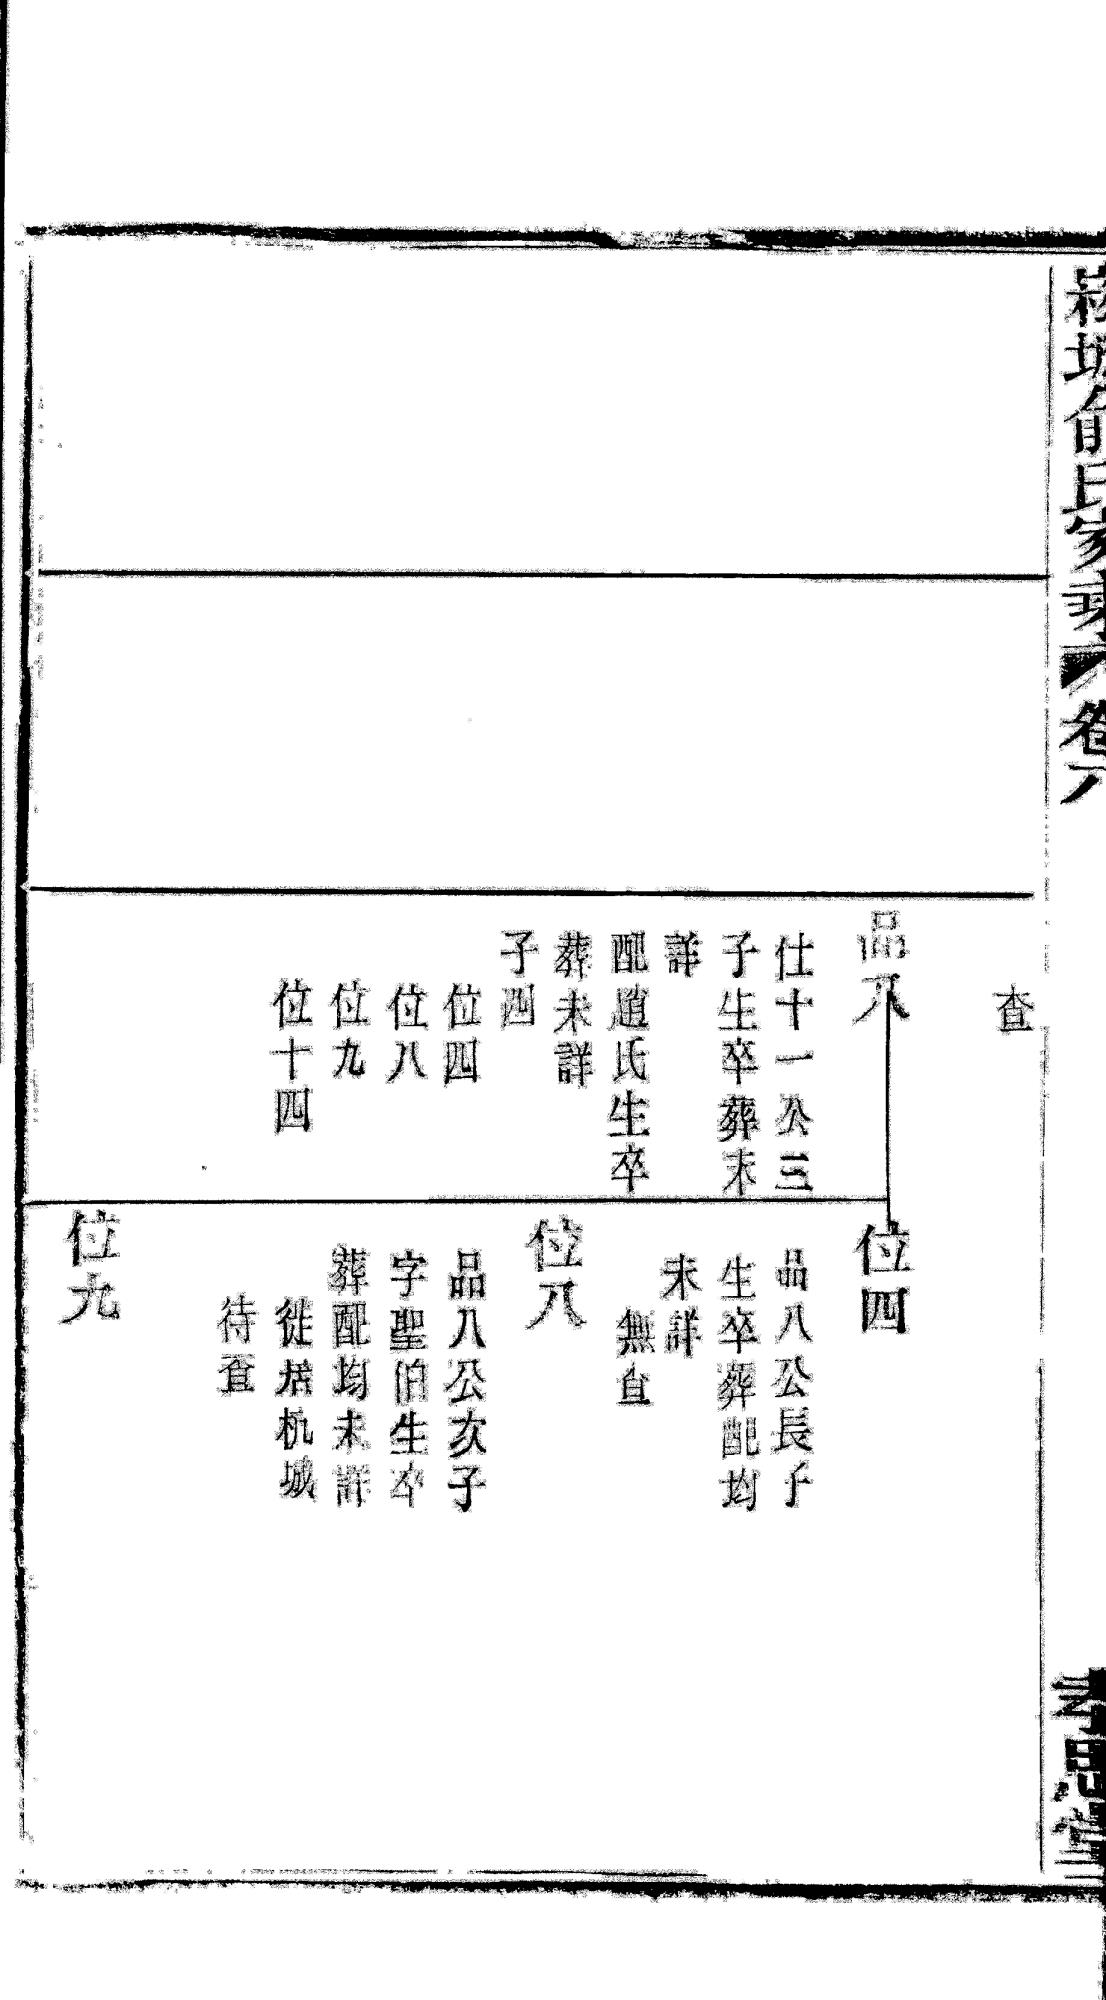 俞氏家乘 卷八
查
品八
仕十一公三
子生卒葬未
詳
配趙氏生卒
葬未詳
子四
位四
位八
位九
位十四
位四
品八公長子
生卒葬配均
未詳
無查
位八
品八公次子
字聖伯生卒
葬配均未詳
徙居杭城
待查
位九
思堂